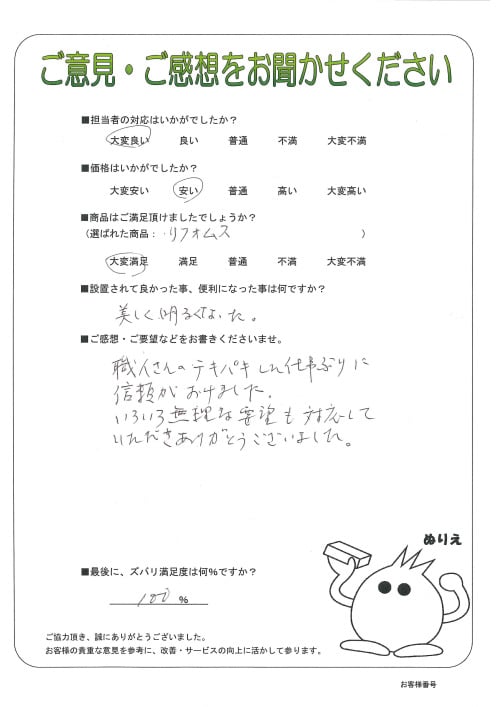 ご意見・ご感想をお聞かせください
■担当者の対応はいかがでしたか？
大変良い 良い 普通 不満 大変不満
■価格はいかがでしたか？
大変安い 安い 普通 高い 大変高い
■商品はご満足頂けましたでしょうか？
（選ばれた商品： リフォムス ）
大変満足 満足 普通 不満 大変不満
■設置されて良かった事、便利になった事は何ですか？
美しく明るくなった。
■ご感想・ご要望などをお書きくださいませ。
職人さんのテキパキした仕事ぶりに
信頼がおけました。
いろいろ無理な要望も対応して
いただきありがとうございました。
ぬりえ
■最後に、ズバリ満足度は何％ですか？
100 ％
ご協力頂き、誠にありがとうございました。
お客様の貴重な意見を参考に、改善・サービスの向上に活かして参ります。
お客様番号